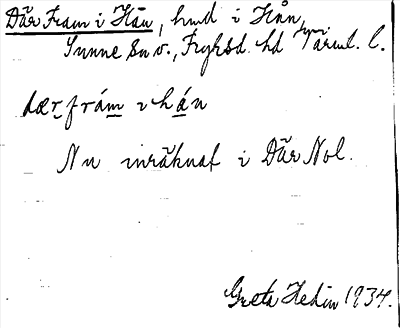 Där Fram i Hån, hmd i Hån,
Sunne sn o., Fryksd. hd Värml. l.
dær frám i hán
Nu inräknat i Där Nol.
Greta Hedin 1934.